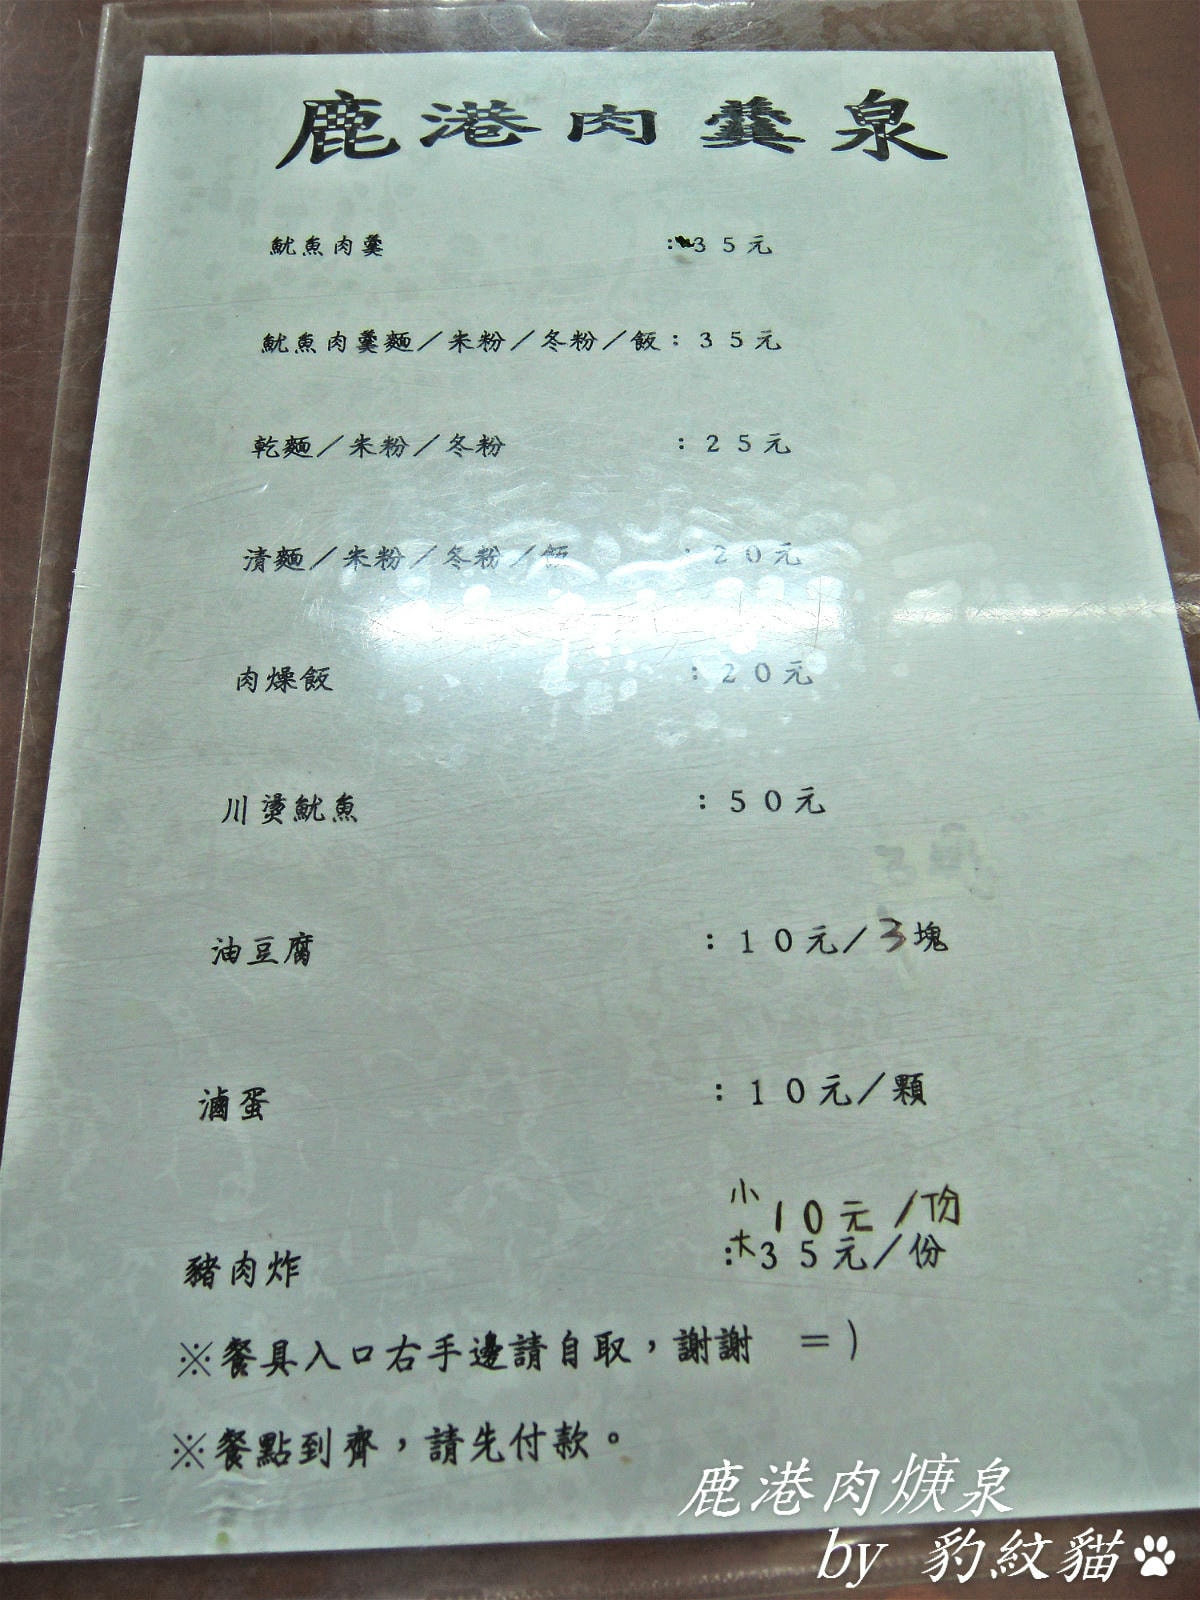 鹿港肉羹泉
魷魚肉羹：35元
魷魚肉羹麵／米粉／冬粉／飯：35元
乾麵／米粉／冬粉：25元
清麵／米粉／冬粉／飯：20元
肉燥飯：20元
川燙魷魚：50元
油豆腐：10元／3塊
滷蛋：10元／顆
小 10元／份
豬肉炸：大35元／份
※餐具入口右手邊請自取，謝謝 =)
※餐點到齊，請先付款。
鹿港肉焿泉
by 豹紋貓